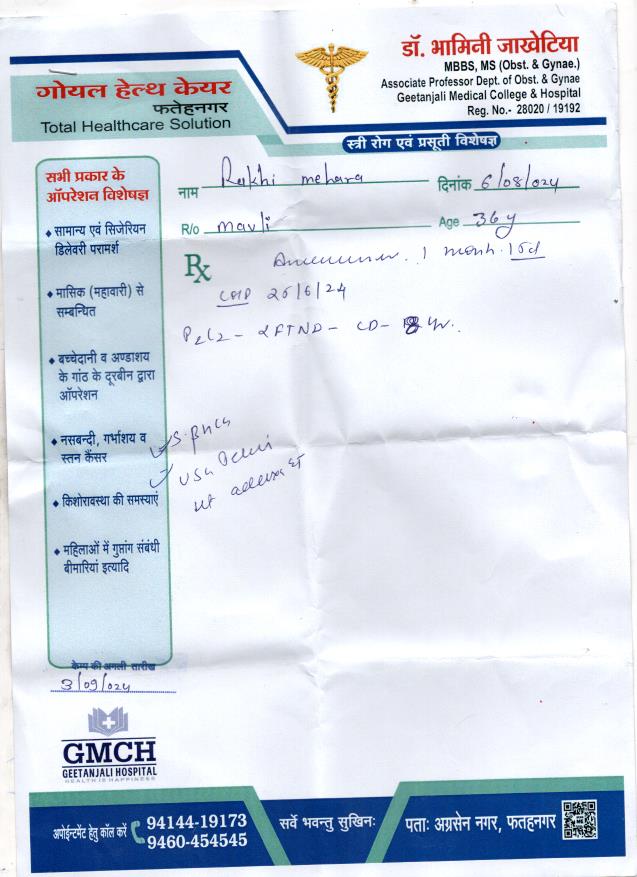 गोयल हेल्थ केयर
फतेहनगर
Total Healthcare Solution
डॉ. भामिनी जाखेटिया
MBBS, MS (Obst. & Gynae.)
Associate Professor Dept. of Obst. & Gynae
Geetanjali Medical College & Hospital
Reg. No.- 28020 / 19192
स्त्री रोग एवं प्रसूती विशेषज्ञ
नाम Rakhi mehara दिनांक 6/08/024
R/o mavli Age 36y
Rx 1 month
LMP 26/6/24
P2L2 - 2FTND - CD - 8 yr.
सभी प्रकार के
ऑपरेशन विशेषज्ञ
सामान्य एवं सिजेरियन
डिलेवरी परामर्श
मासिक (महावारी) से
सम्बन्धित
बच्चेदानी व अण्डाशय
के गांठ के दूरबीन द्वारा
ऑपरेशन
नसबन्दी, गर्भाशय व
स्तन कैंसर
किशोरावस्था की समस्याएं
महिलाओं में गुप्तांग संबंधी
बीमारियां इत्यादि
S. βHCG
USG Pelvis
केम्प की अगली तारीख
3/09/024
GMCH
GEETANJALI HOSPITAL
HEALTH IS HAPPINESS
अपोईन्टमेंट हेतु कॉल करें 94144-19173
9460-454545
सर्वे भवन्तु सुखिनः
पताः अग्रसेन नगर, फतहनगर